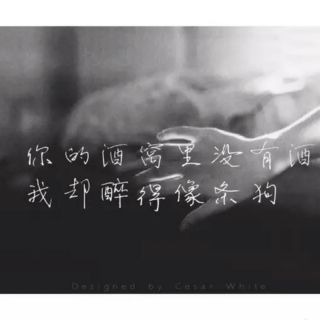 你的酒窝里没有酒
我却醉得像条狗
Designed by Cesar White